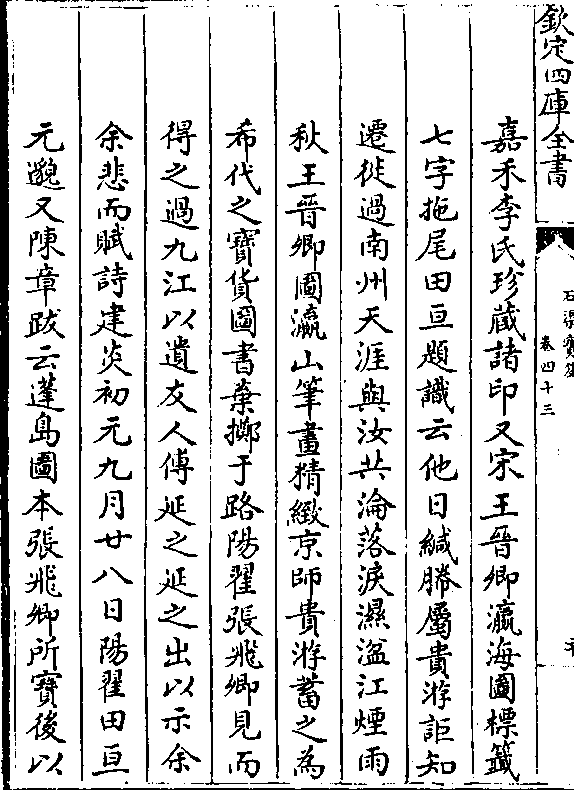 欽定四庫全書
石渠寶笈
卷四十三
嘉禾李氏珍藏諸印又宋王晉卿瀛海圖標籤
七字拖尾田亘題識云他日緘縢屬貴游詎知
遷徙過南州天涯與汝共淪落淚濕湓江煙雨
秋王晉卿圖瀛山筆畫精緻京師貴游蓄之為
希代之寶貨圖書棄擲于路陽翟張飛卿見而
得之過九江以遺友人傅延之延之出以示余
余悲而賦詩建炎初元九月廿八日陽翟田亘
元邈又陳章跋云蓬島圖本張飛卿所寶後以